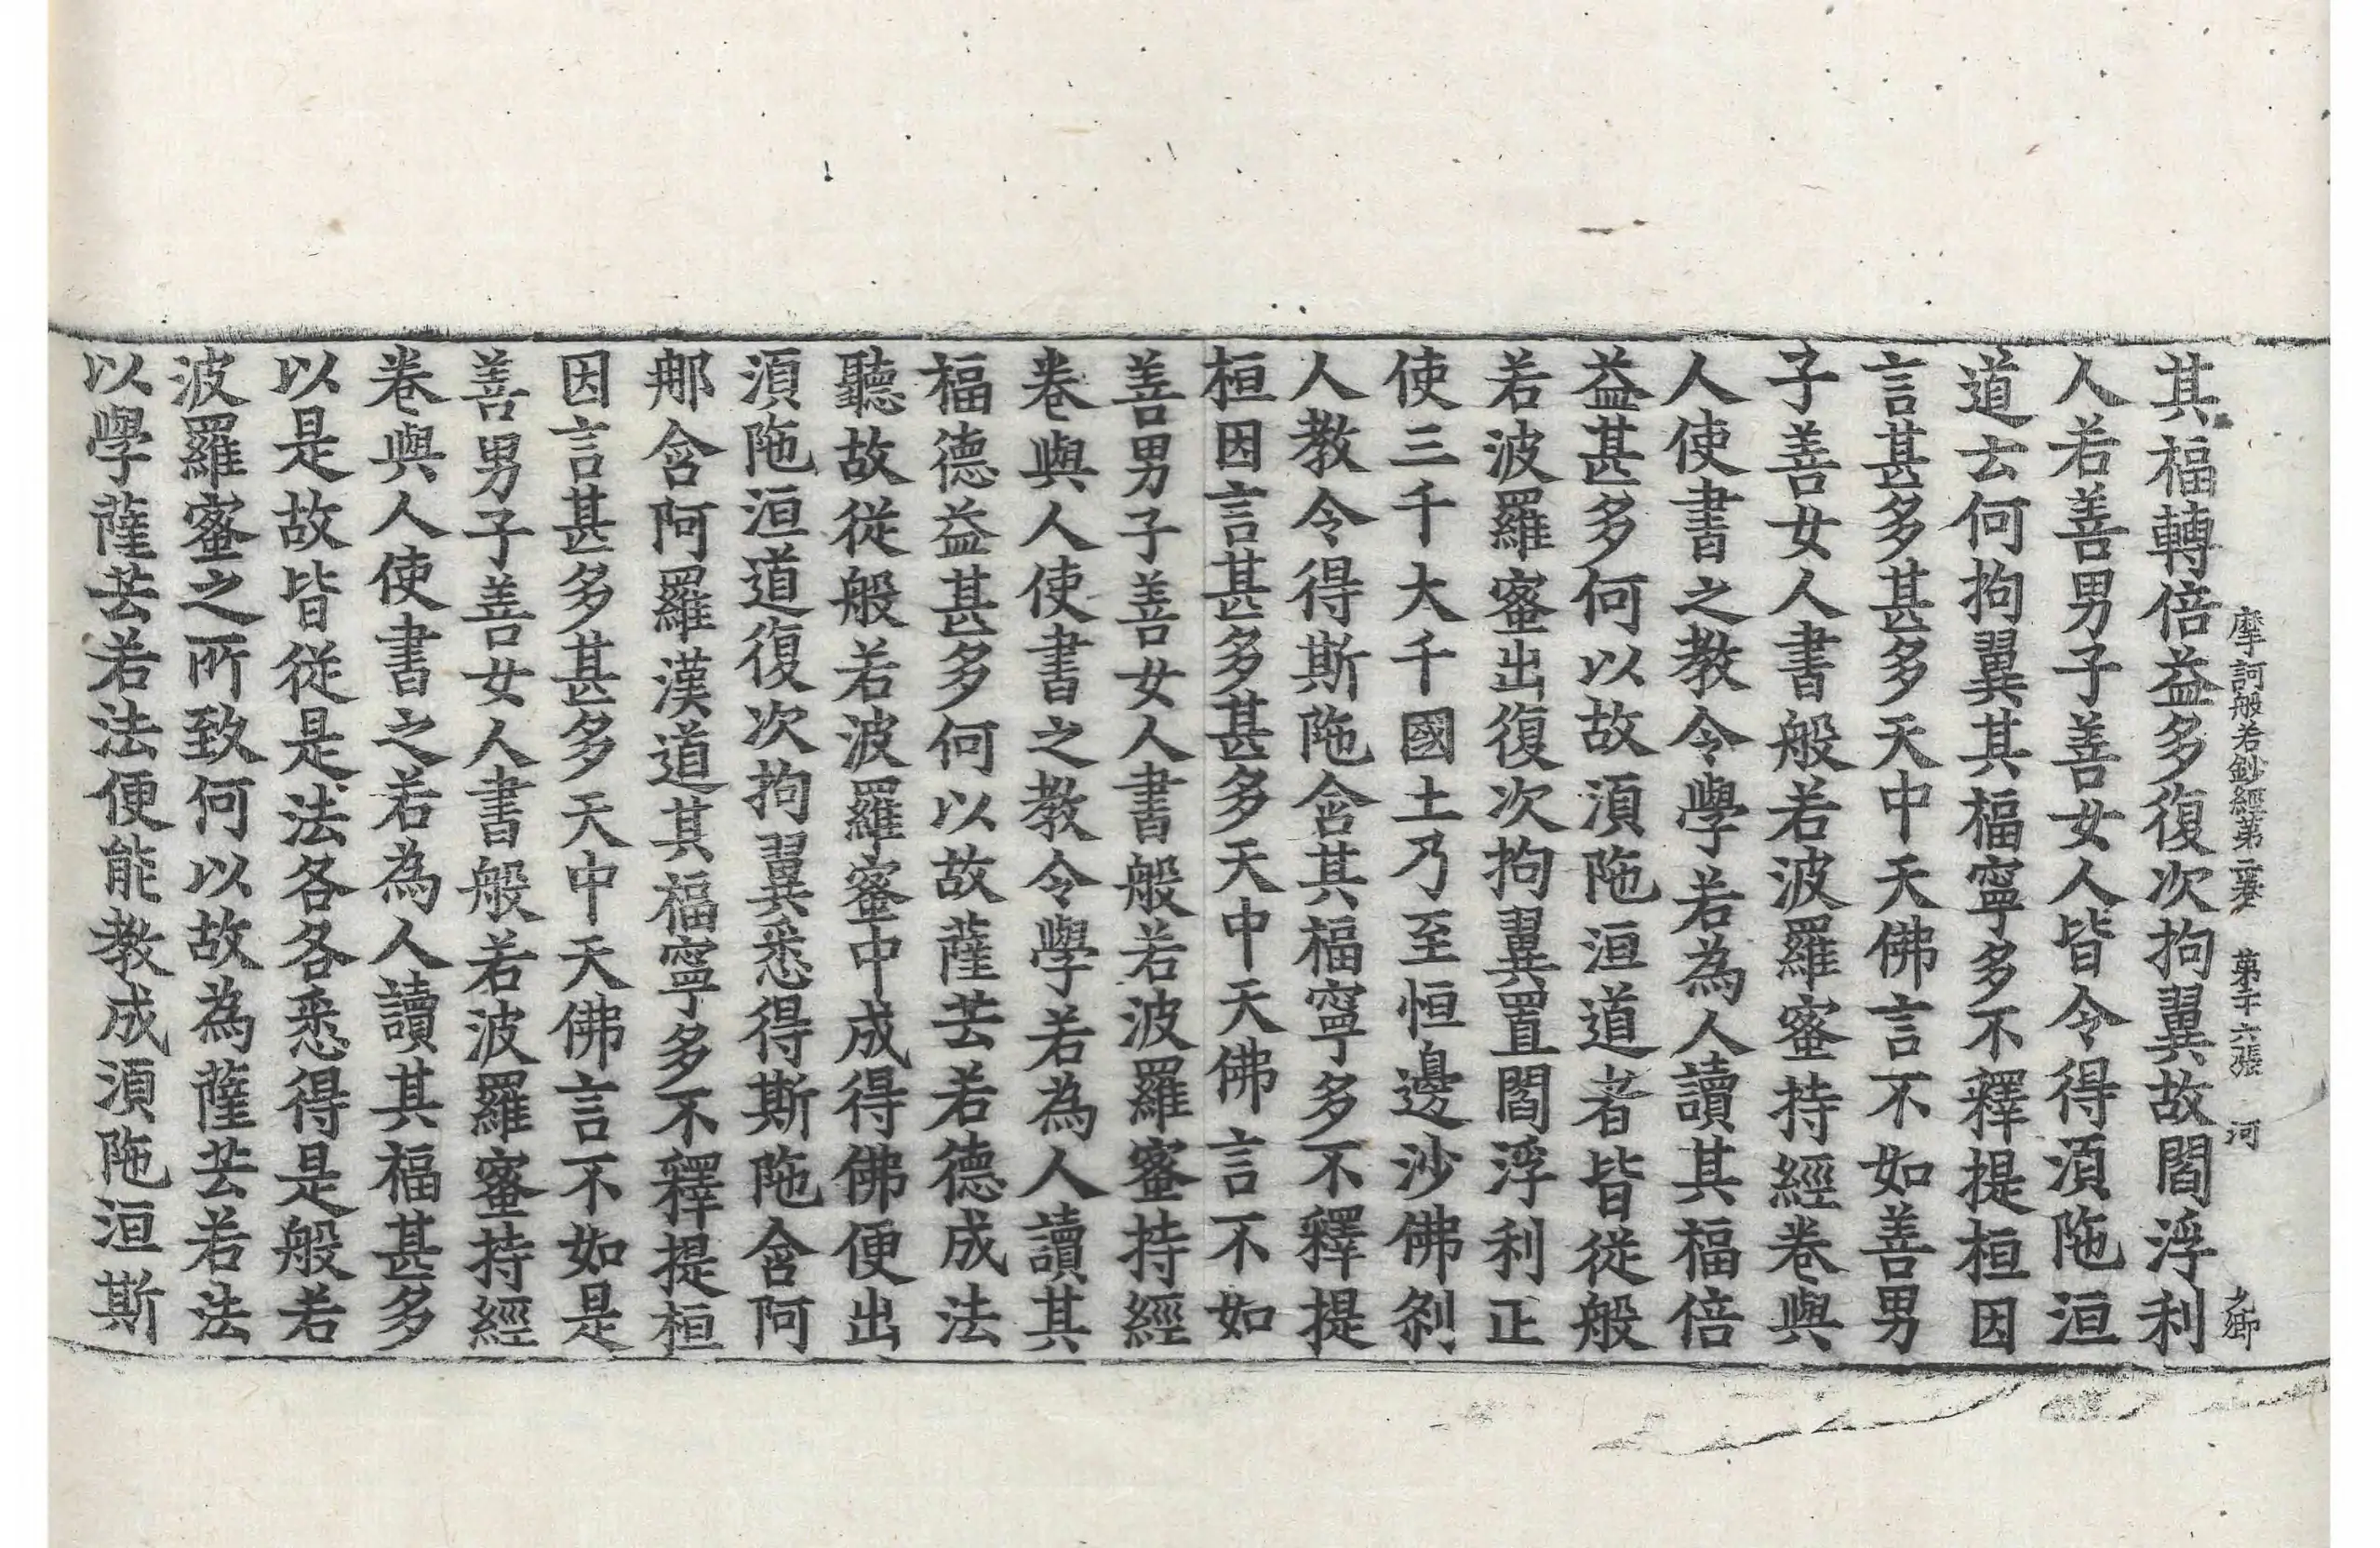 摩訶般若鈔經第二卷 第二十六張 河 之鄉
其福轉倍益多復次拘翼故閻浮利
人若善男子善女人皆令得湏陁洹
道云何拘翼其福寧多不釋提桓因
言甚多甚多天中天佛言不如善男
子善女人書般若波羅蜜持經卷與
人使書之教令學若為人讀其福倍
益甚多何以故湏陁洹道者皆從般
若波羅蜜出復次拘翼置閻浮利正
使三千大千國土乃至恒邊沙佛刹
人教令得斯陁含其福寧多不釋提
桓因言甚多甚多天中天佛言不如
善男子善女人書般若波羅蜜持經
卷與人使書之教令學若為人讀其
福德益甚多何以故薩芸若德成法
聽故從般若波羅蜜中成得佛便出
湏陁洹道復次拘翼悉得斯陁含阿
那含阿羅漢道其福寧多不釋提桓
因言甚多甚多天中天佛言不如是
善男子善女人書般若波羅蜜持經
卷與人使書之若為人讀其福甚多
以是故皆從是法各各悉得是般若
波羅蜜之所致何以故為薩芸若法
以學薩芸若法便能教成湏陁洹斯